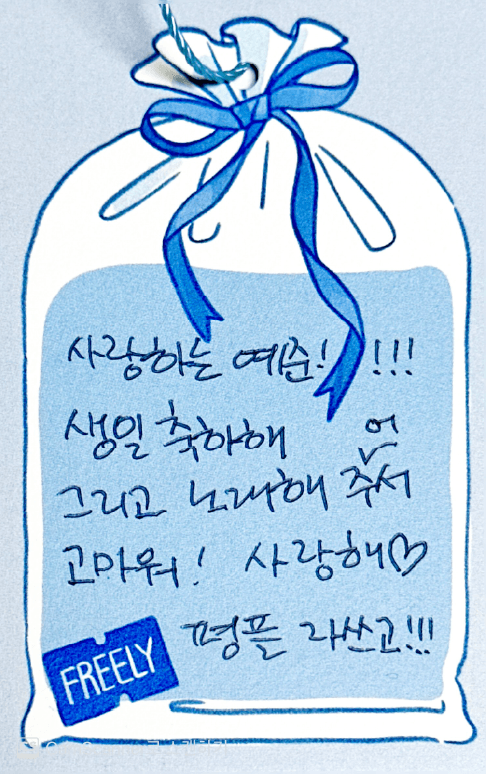 사랑하는 예준! !!!
생일 축하해
그리고 노래해 주어서
고마워! 사랑해♡
평플 라쓰고!!!
FREELY